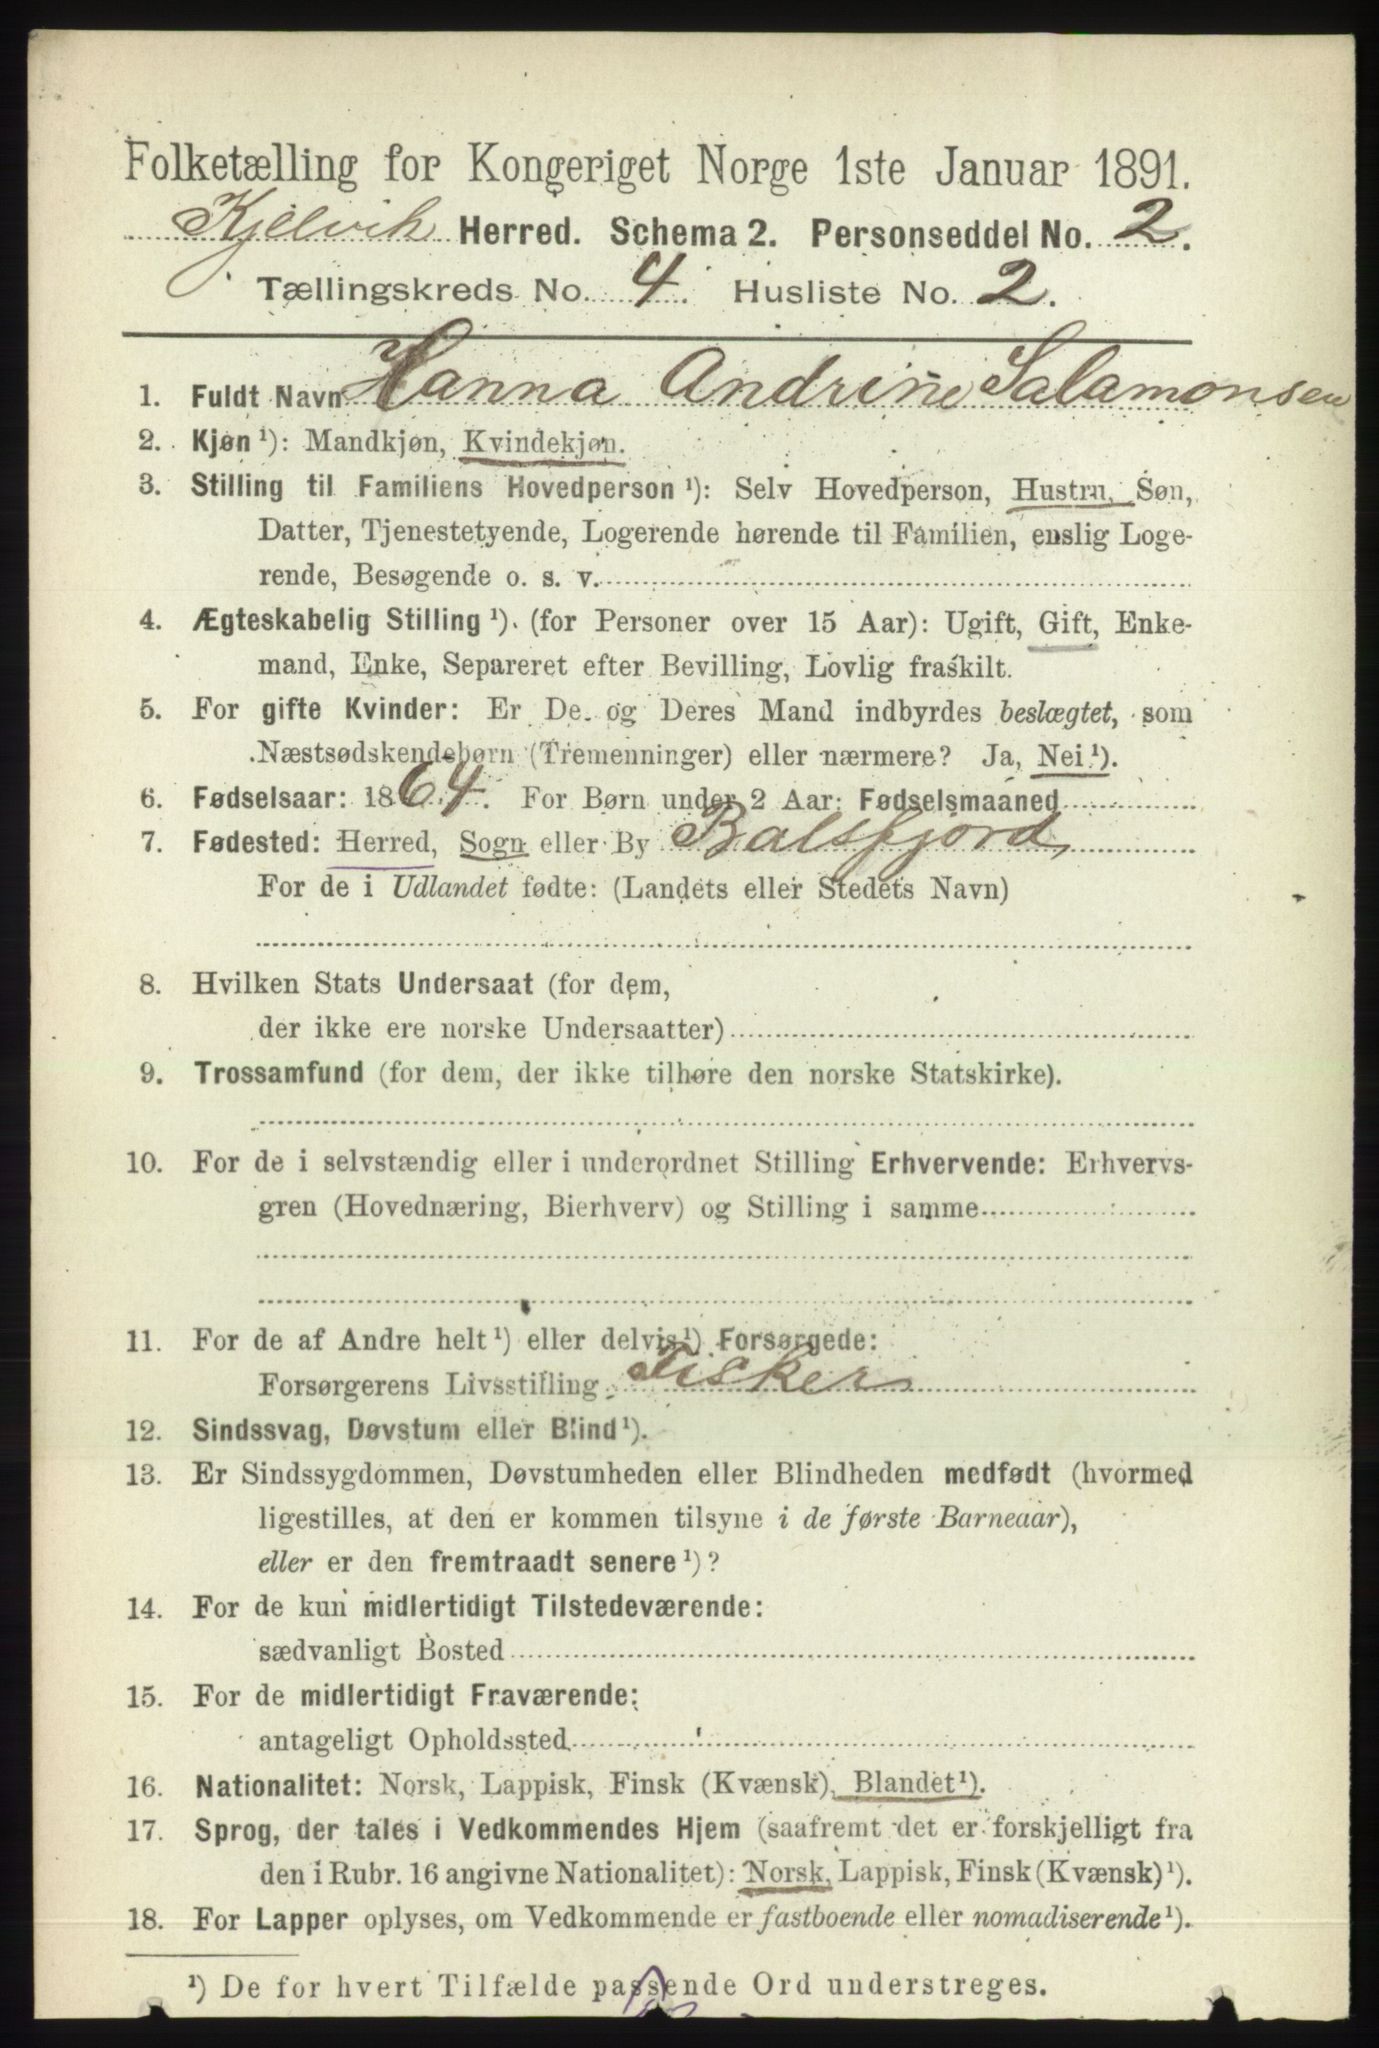 Folketælling for Kongeriget Norge 1ste Januar 1891.
Kjelvik Herred. Schema 2. Personseddel No. 2.
Tællingskreds No. 4. Husliste No. 2.
1. Fuldt Navn Hanna Andrine Salamonsen
2. Kjøn ¹): Mandkjøn, Kvindekjøn.
3. Stilling til Familiens Hovedperson ¹): Selv Hovedperson, Hustru, Søn,
Datter, Tjenestetyende, Logerende hørende til Familien, enslig Loge-
rende, Besøgende o. s. v.
4. Ægteskabelig Stilling ¹). (for Personer over 15 Aar): Ugift, Gift, Enke-
mand, Enke, Separeret efter Bevilling, Lovlig fraskilt.
5. For gifte Kvinder: Er De og Deres Mand indbyrdes beslægtet, som
Næstsødskendebørn (Tremenninger) eller nærmere? Ja, Nei ¹).
6. Fødselsaar: 1864. For Børn under 2 Aar: Fødselsmaaned
7. Fødested: Herred, Sogn eller By Balsfjord
For de i Udlandet fødte: (Landets eller Stedets Navn)
8. Hvilken Stats Undersaat (for dem,
der ikke ere norske Undersaatter)
9. Trossamfund (for dem, der ikke tilhøre den norske Statskirke).
10. For de i selvstændig eller i underordnet Stilling Erhvervende: Erhvervs-
gren (Hovednæring, Bierhverv) og Stilling i samme
11. For de af Andre helt ¹) eller delvis ¹) Forsørgede:
Forsørgerens Livsstilling Fisker
12. Sindssvag, Døvstum eller Blind ¹).
13. Er Sindssygdommen, Døvstumheden eller Blindheden medfødt (hvormed
ligestilles, at den er kommen tilsyne i de første Barneaar),
eller er den fremtraadt senere ¹)?
14. For de kun midlertidigt Tilstedeværende:
sædvanligt Bosted
15. For de midlertidigt Fraværende:
antageligt Opholdssted
16. Nationalitet: Norsk, Lappisk, Finsk (Kvænsk), Blandet ¹).
17. Sprog, der tales i Vedkommendes Hjem (saafremt det er forskjelligt fra
den i Rubr. 16 angivne Nationalitet): Norsk, Lappisk, Finsk (Kvænsk) ¹).
18. For Lapper oplyses, om Vedkommende er fastboende eller nomadiserende ¹).
¹) De for hvert Tilfælde passende Ord understreges.